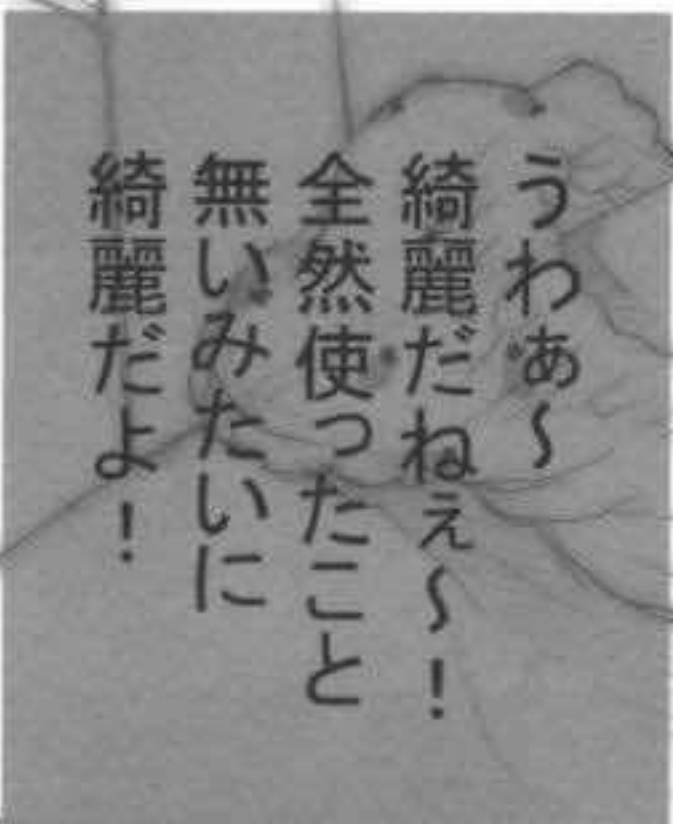 うわぁ〜
綺麗だねぇ〜！
全然使ったこと
無いみたいに
綺麗だよ！